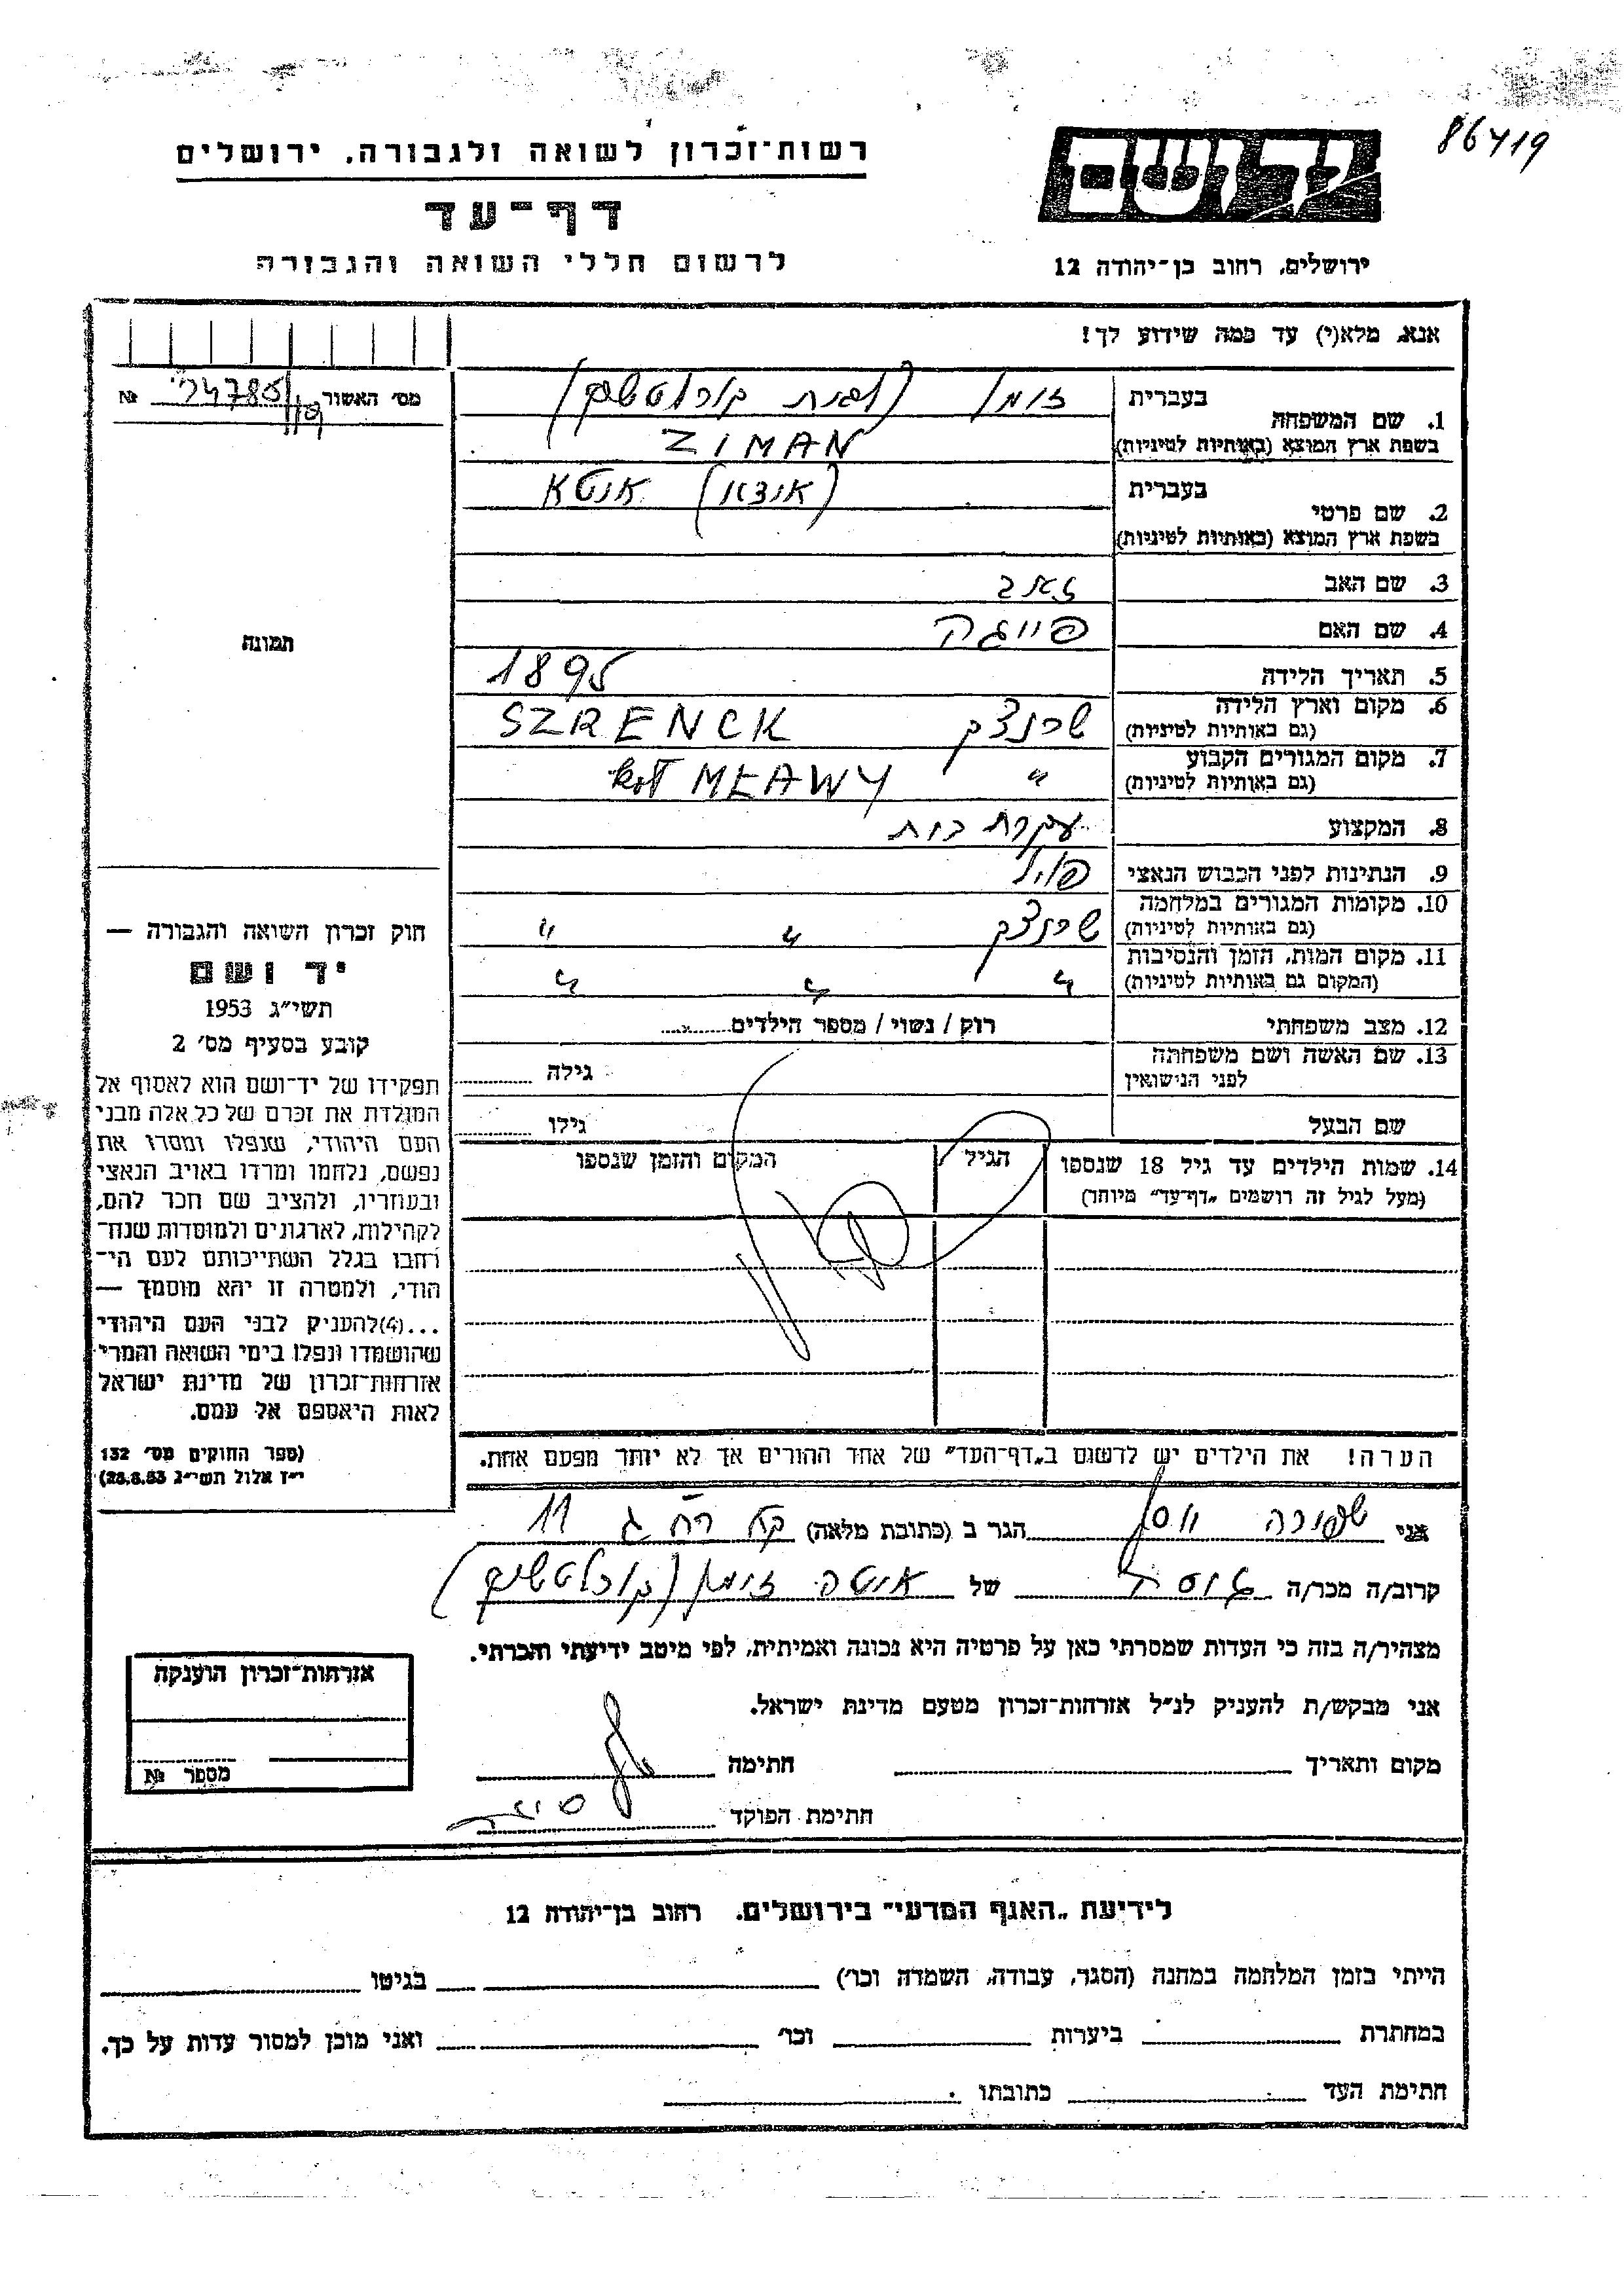 86419
רשות-זכרון לשואה ולגבורה, ירושלים
דף-עד
לרשום חללי השואה והגבורה
ידושם
ירושלים, רחוב בן-יהודה 12
אנא, מלא(י) עד כמה שידוע לך!
מס׳ האשור 24785 №
1. שם המשפחה
בעברית זימן
בשפת ארץ המוצא (באותיות לטיניות) ZIMAN
2. שם פרטי
בעברית (אוצא) אוטא
בשפת ארץ המוצא (באותיות לטיניות)
3. שם האב זאב
4. שם האם פייגה
5. תאריך הלידה 1895
6. מקום וארץ הלידה שרנצק SZRENCK
(גם באותיות לטיניות)
7. מקום המגורים הקבוע " koŁ MŁAWY
(גם באותיות לטיניות)
8. המקצוע עקרת בית
9. הנתינות לפני הכבוש הנאצי פולנ
10. מקומות המגורים במלחמה שרנצק " "
(גם באותיות לטיניות)
11. מקום המות, הזמן והנסיבות " " "
(המקום גם באותיות לטיניות)
12. מצב משפחתי רוק / נשוי / מספר הילדים
13. שם האשה ושם משפחתה
לפני הנישואין גילה
שם הבעל גילו
14. שמות הילדים עד גיל 18 שנספו הגיל המקום והזמן שנספו
(מעל לגיל זה רושמים „דף-עד" מיוחד)
תמונה
חוק זכרון השואה והגבורה —
יד ושם
תשי"ג 1953
קובע בסעיף מס׳ 2
תפקידו של יד-ושם הוא לאסוף אל
המולדת את זכרם של כל אלה מבני
העם היהודי, שנפלו ומסרו את
נפשם, נלחמו ומרדו באויב הנאצי
ובעוזריו, ולהציב שם וזכר להם,
לקהילות, לארגונים ולמוסדות שנח-
רבו בגלל השתייכותם לעם הי-
הודי, ולמטרה זו יהא מוסמך —
...(4)להעניק לבני העם היהודי
שהושמדו ונפלו בימי השואה והמרי
אזרחות-זכרון של מדינת ישראל
לאות היאספם אל עמם.
(ספר החוקים מס׳ 132
י"ז אלול תשי"ג 28.8.53)
הערה! את הילדים יש לרשום ב„דף-העד" של אחד ההורים אך לא יותר מפעם אחת.
אני שפירה הגר ב (כתובת מלאה) 11
קרוב/ה מכר/ה גיסה של אוטה זימן
מצהיר/ה בזה כי העדות שמסרתי כאן על פרטיה היא נכונה ואמיתית, לפי מיטב ידיעתי והכרתי.
אני מבקש/ת להעניק לנ"ל אזרחות-זכרון מטעם מדינת ישראל.
מקום ותאריך חתימה
חתימת הפוקד
אזרחות-זכרון הוענקה
מספר №
לידיעת „האגף המדעי" בירושלים, רחוב בן-יהודה 12
הייתי בזמן המלחמה במחנה (הסגר, עבודה, השמדה וכו׳) בגיטו
במחתרת ביערות וכו׳ ואני מוכן למסור עדות על כך.
חתימת העד כתובתו